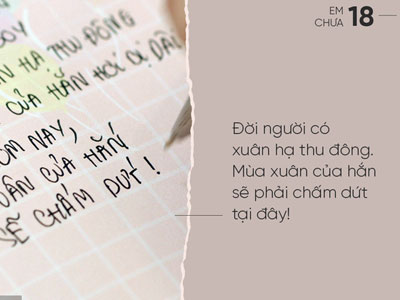 EM
CHƯA 18
HẠ THU ĐÔNG
CỦA HẮN HƠI DỊ
NAY,
XUÂN CỦA HẮN
SẼ CHẤM DỨT!
Đời người có
xuân hạ thu đông.
Mùa xuân của hắn
sẽ phải chấm dứt
tại đây!